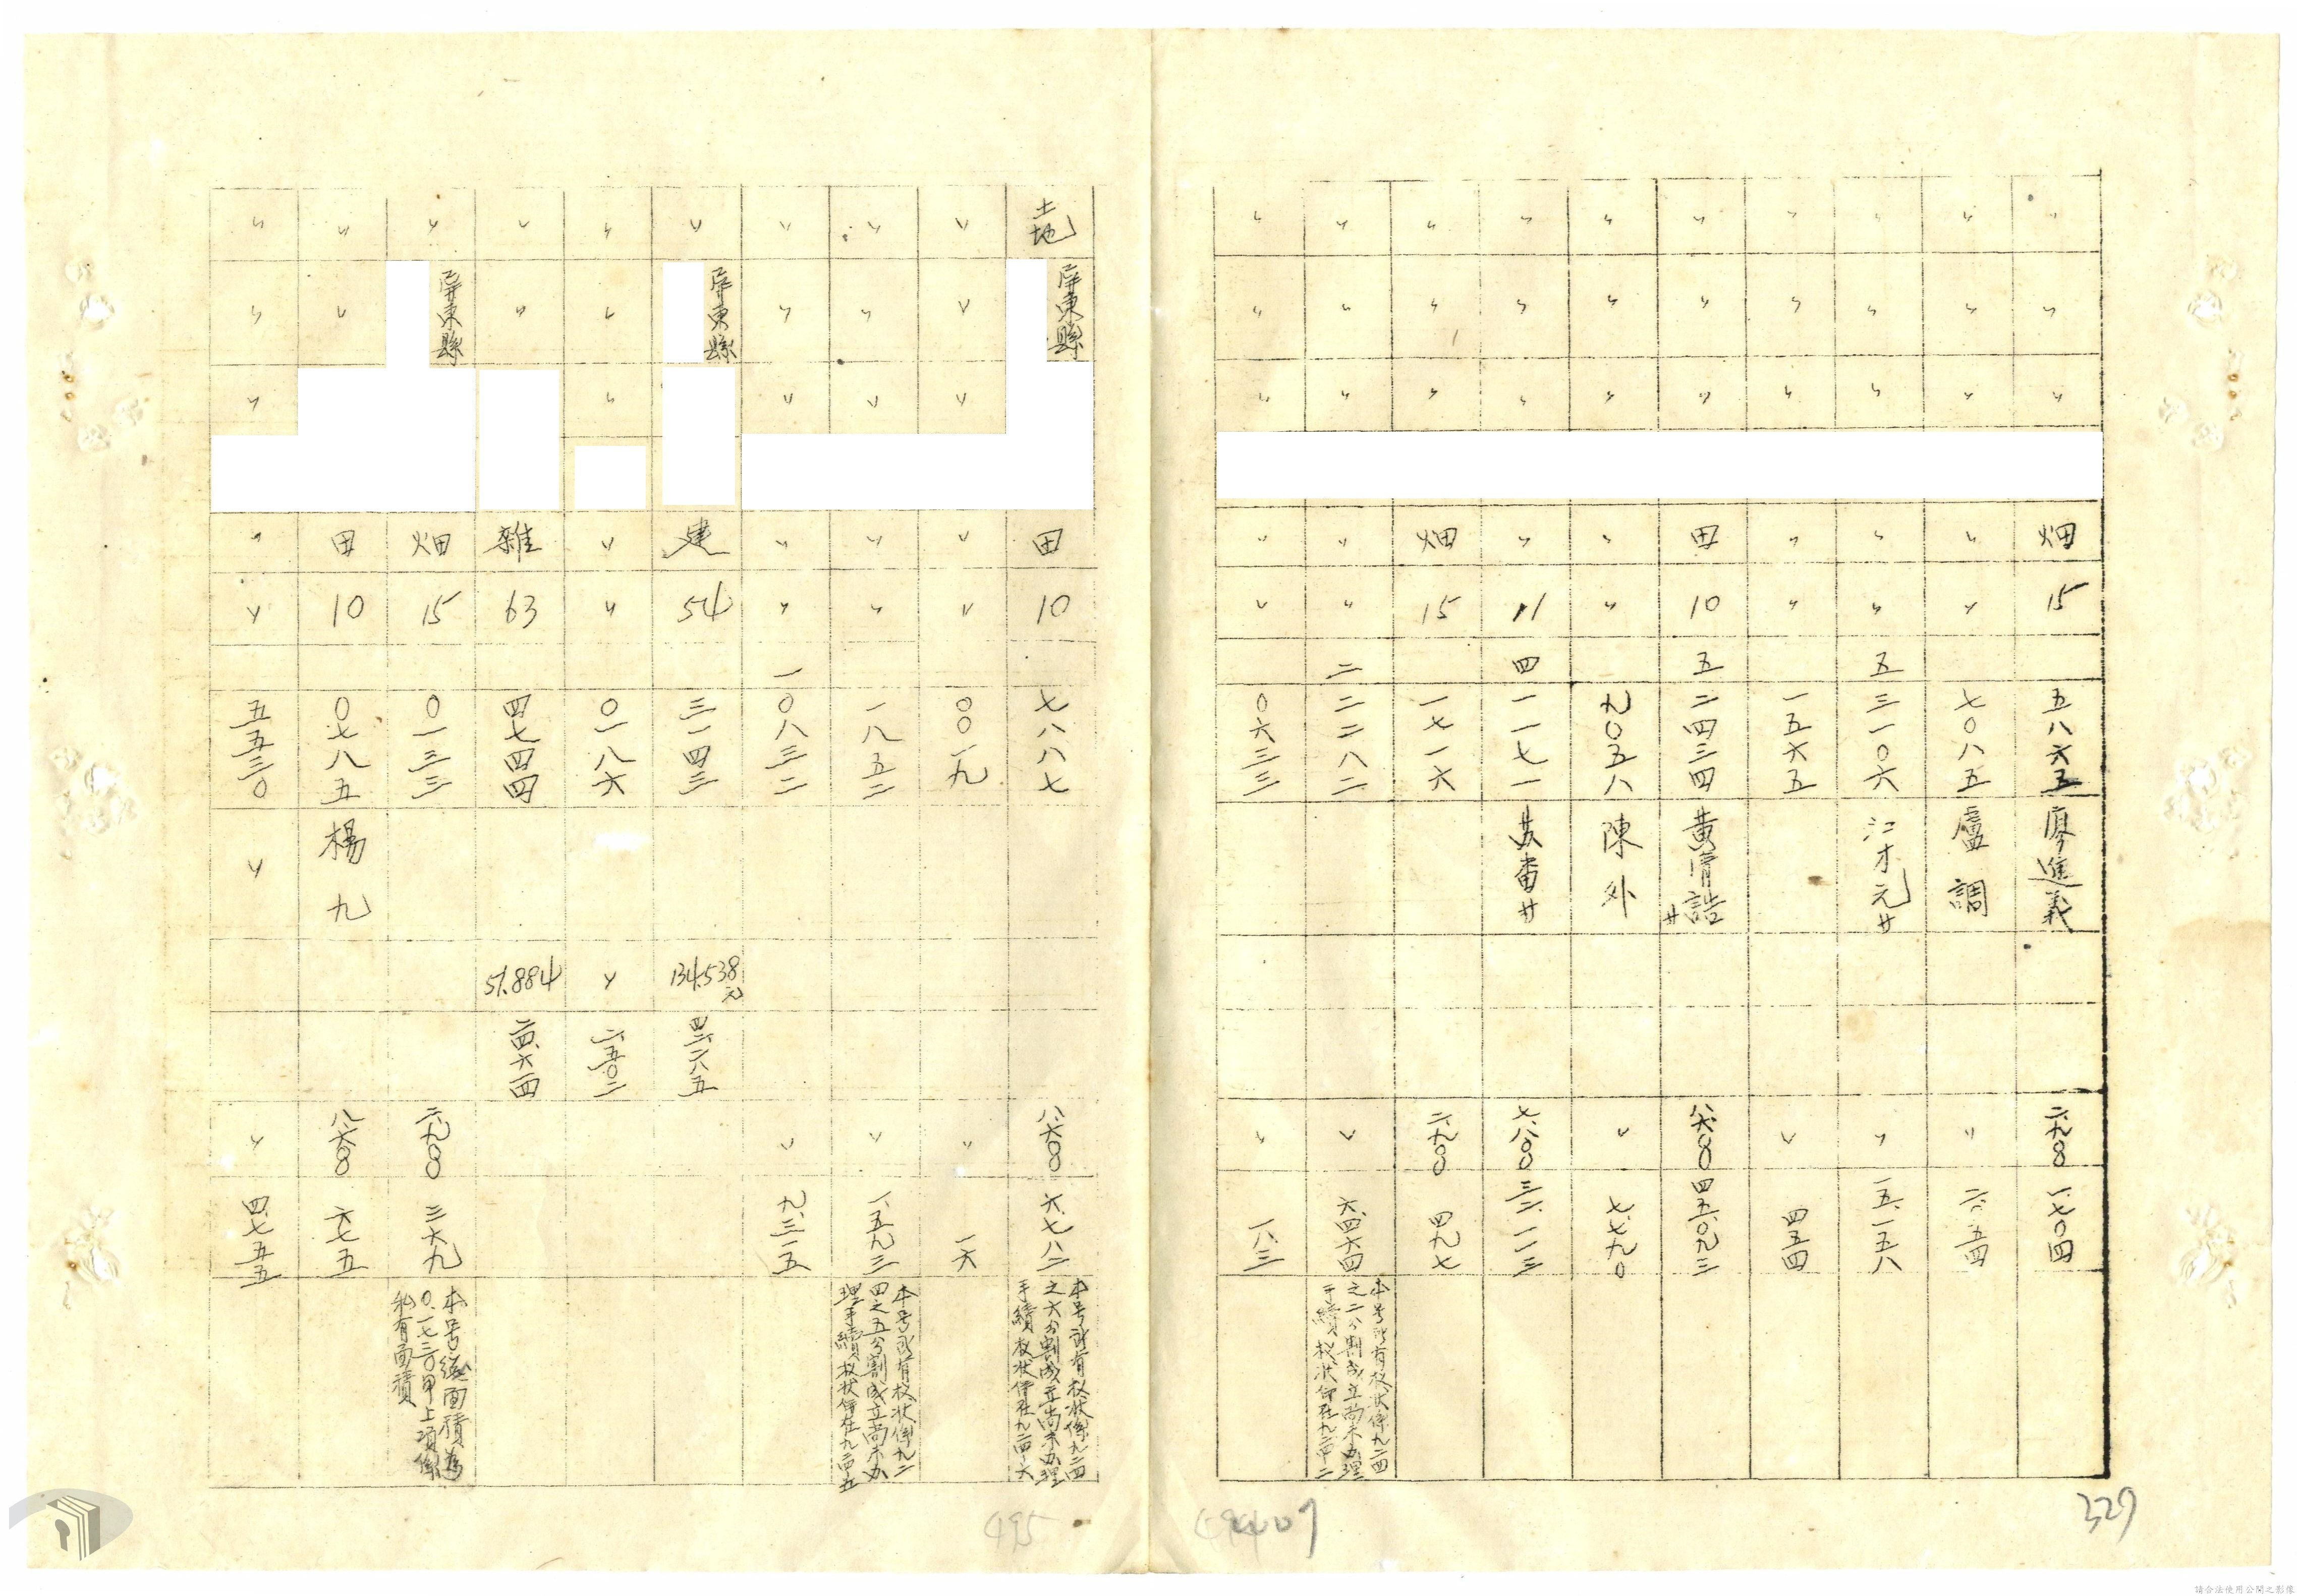 〃 〃 〃 畑 15 五八六五 廖進義 二.九〇〇 一.七〇四
〃 〃 〃 〃 〃 七〇八五 盧調 〃 二.〇五四
〃 〃 〃 〃 〃 五 三一〇六 江才元廿 〃 一五.一五八
〃 〃 〃 〃 〃 一五六五 〃 四五四
〃 〃 〃 田 10 五 二四三四 八.六〇〇 四五.〇九三
〃 〃 〃 〃 〃 九〇五八 陳外 〃 七.七九〇
〃 〃 〃 〃 11 四 一一七一 七.八〇〇
〃 〃 〃 畑 15 一七一六 二.九〇〇 四九七
〃 〃 〃 〃 〃 二 二二八二 〃 六.四六四
本号所有权狀係九二四
之二分割成立尚未办理
手續权狀仍在九二四之二
〃 〃 〃 〃 〃 〇六三三 〃 一八三
329
土地 屏東縣 田 10 七八八七 八.六〇〇 六.七八二
本号所有权狀係九二四
之六分割成立尚未办理
手續权狀仍在九二四之六
〃 〃 〃 〃 〃 〇〇一九 〃 一六
〃 〃 〃 〃 〃 一八五二 〃 一.五九三
本号所有权狀係九二
四之五分割成立尚未办
理手續权狀仍在九二四之五
〃 〃 〃 〃 〃 一 〇八三二 〃 九.三一五
〃 屏東縣 建 54 三一四三 134.538元
〃 〃 〃 〃 〃 〇一八六 〃
〃 〃 雜 63 四七四四 51.884
〃 屏東縣 畑 15 〇一三三 二.九〇〇 三六九
本号總面積為
〇.一七三〇甲上項係
私有面積
〃 〃 田 10 〇七八五 楊九 八.六〇〇 六七五
〃 〃 〃 〃 〃 五五三〇 〃 〃 四.七五五
495
請合法使用公開之影像